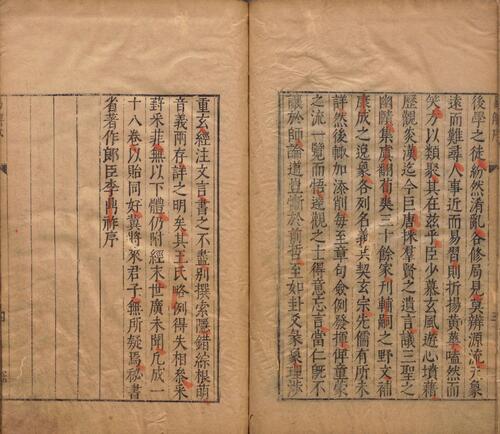 後學之徒紛然淆亂各修局見莫辯源流天象
遠而難尋人事近而易習則折揚黃華嗑然而
笑方以類聚其在茲乎臣少慕玄風遊心墳籍
歷觀炎漢迄今巨唐採羣賢之遺言議三聖之
幽賾集虞翻荀爽三十餘家刋輔嗣之野文補
康成之逸象各列名義共契玄宗先儒有所未
詳然後輙加添削每至章句僉例發揮俾童蒙
之流一覽而悟達觀之士得意忘言當仁既不
讓於師論道豈慚於前哲至如卦爻彖象理涉
重玄經注文言書之不盡別撰索隱錯綜根萌
音義兩存詳之明矣其王氏略例得失相參采
葑采菲無以下體仍附經末世廣未聞凡成一
十八卷以貽同好冀將來君子無所疑焉秘書
省著作郎臣李鼎祚序